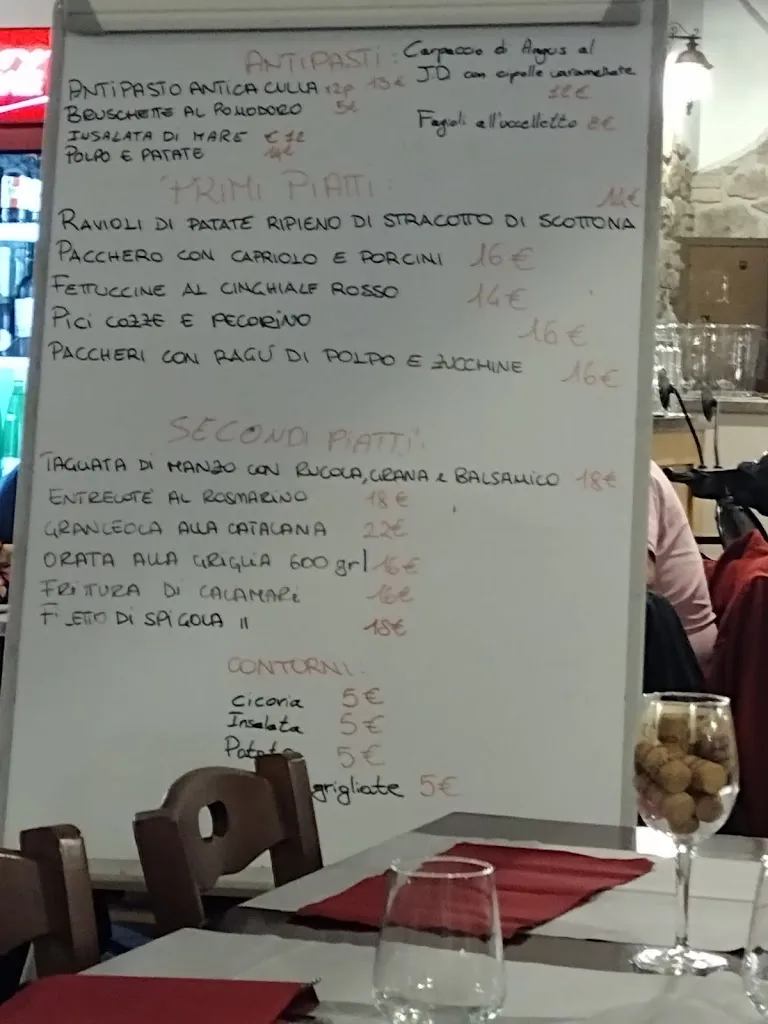 ANTIPASTI:
ANTIPASTO ANTICA CULLA x2p 13€
BRUSCHETTE AL POMODORO 5€
INSALATA DI MARE €12
POLPO E PATATE 14€
Carpaccio di Angus al
JD con cipolle caramellate
12€
Fagioli all'uccelletto 8€
PRIMI PIATTI:
14€
RAVIOLI DI PATATE RIPIENO DI STRACOTTO DI SCOTTONA
PACCHERO CON CAPRIOLO E PORCINI 16€
FETTUCCINE AL CINGHIALE ROSSO 14€
PICI COZZE E PECORINO 16€
PACCHERI CON RAGÚ DI POLPO E ZUCCHINE 16€
SECONDI PIATTI:
TAGLIATA DI MANZO CON RUCOLA, GRANA e BALSAMICO 18€
ENTRECOTE AL ROSMARINO 18€
GRANCEOLA ALLA CATALANA 22€
ORATA ALLA GRIGLIA 600 grl 16€
FRITTURA DI CALAMARI 16€
DI SPIGOLA 18€
CONTORNI:
Cicoria 5€
Insalata 5€
Patate 5€
grigliate 5€